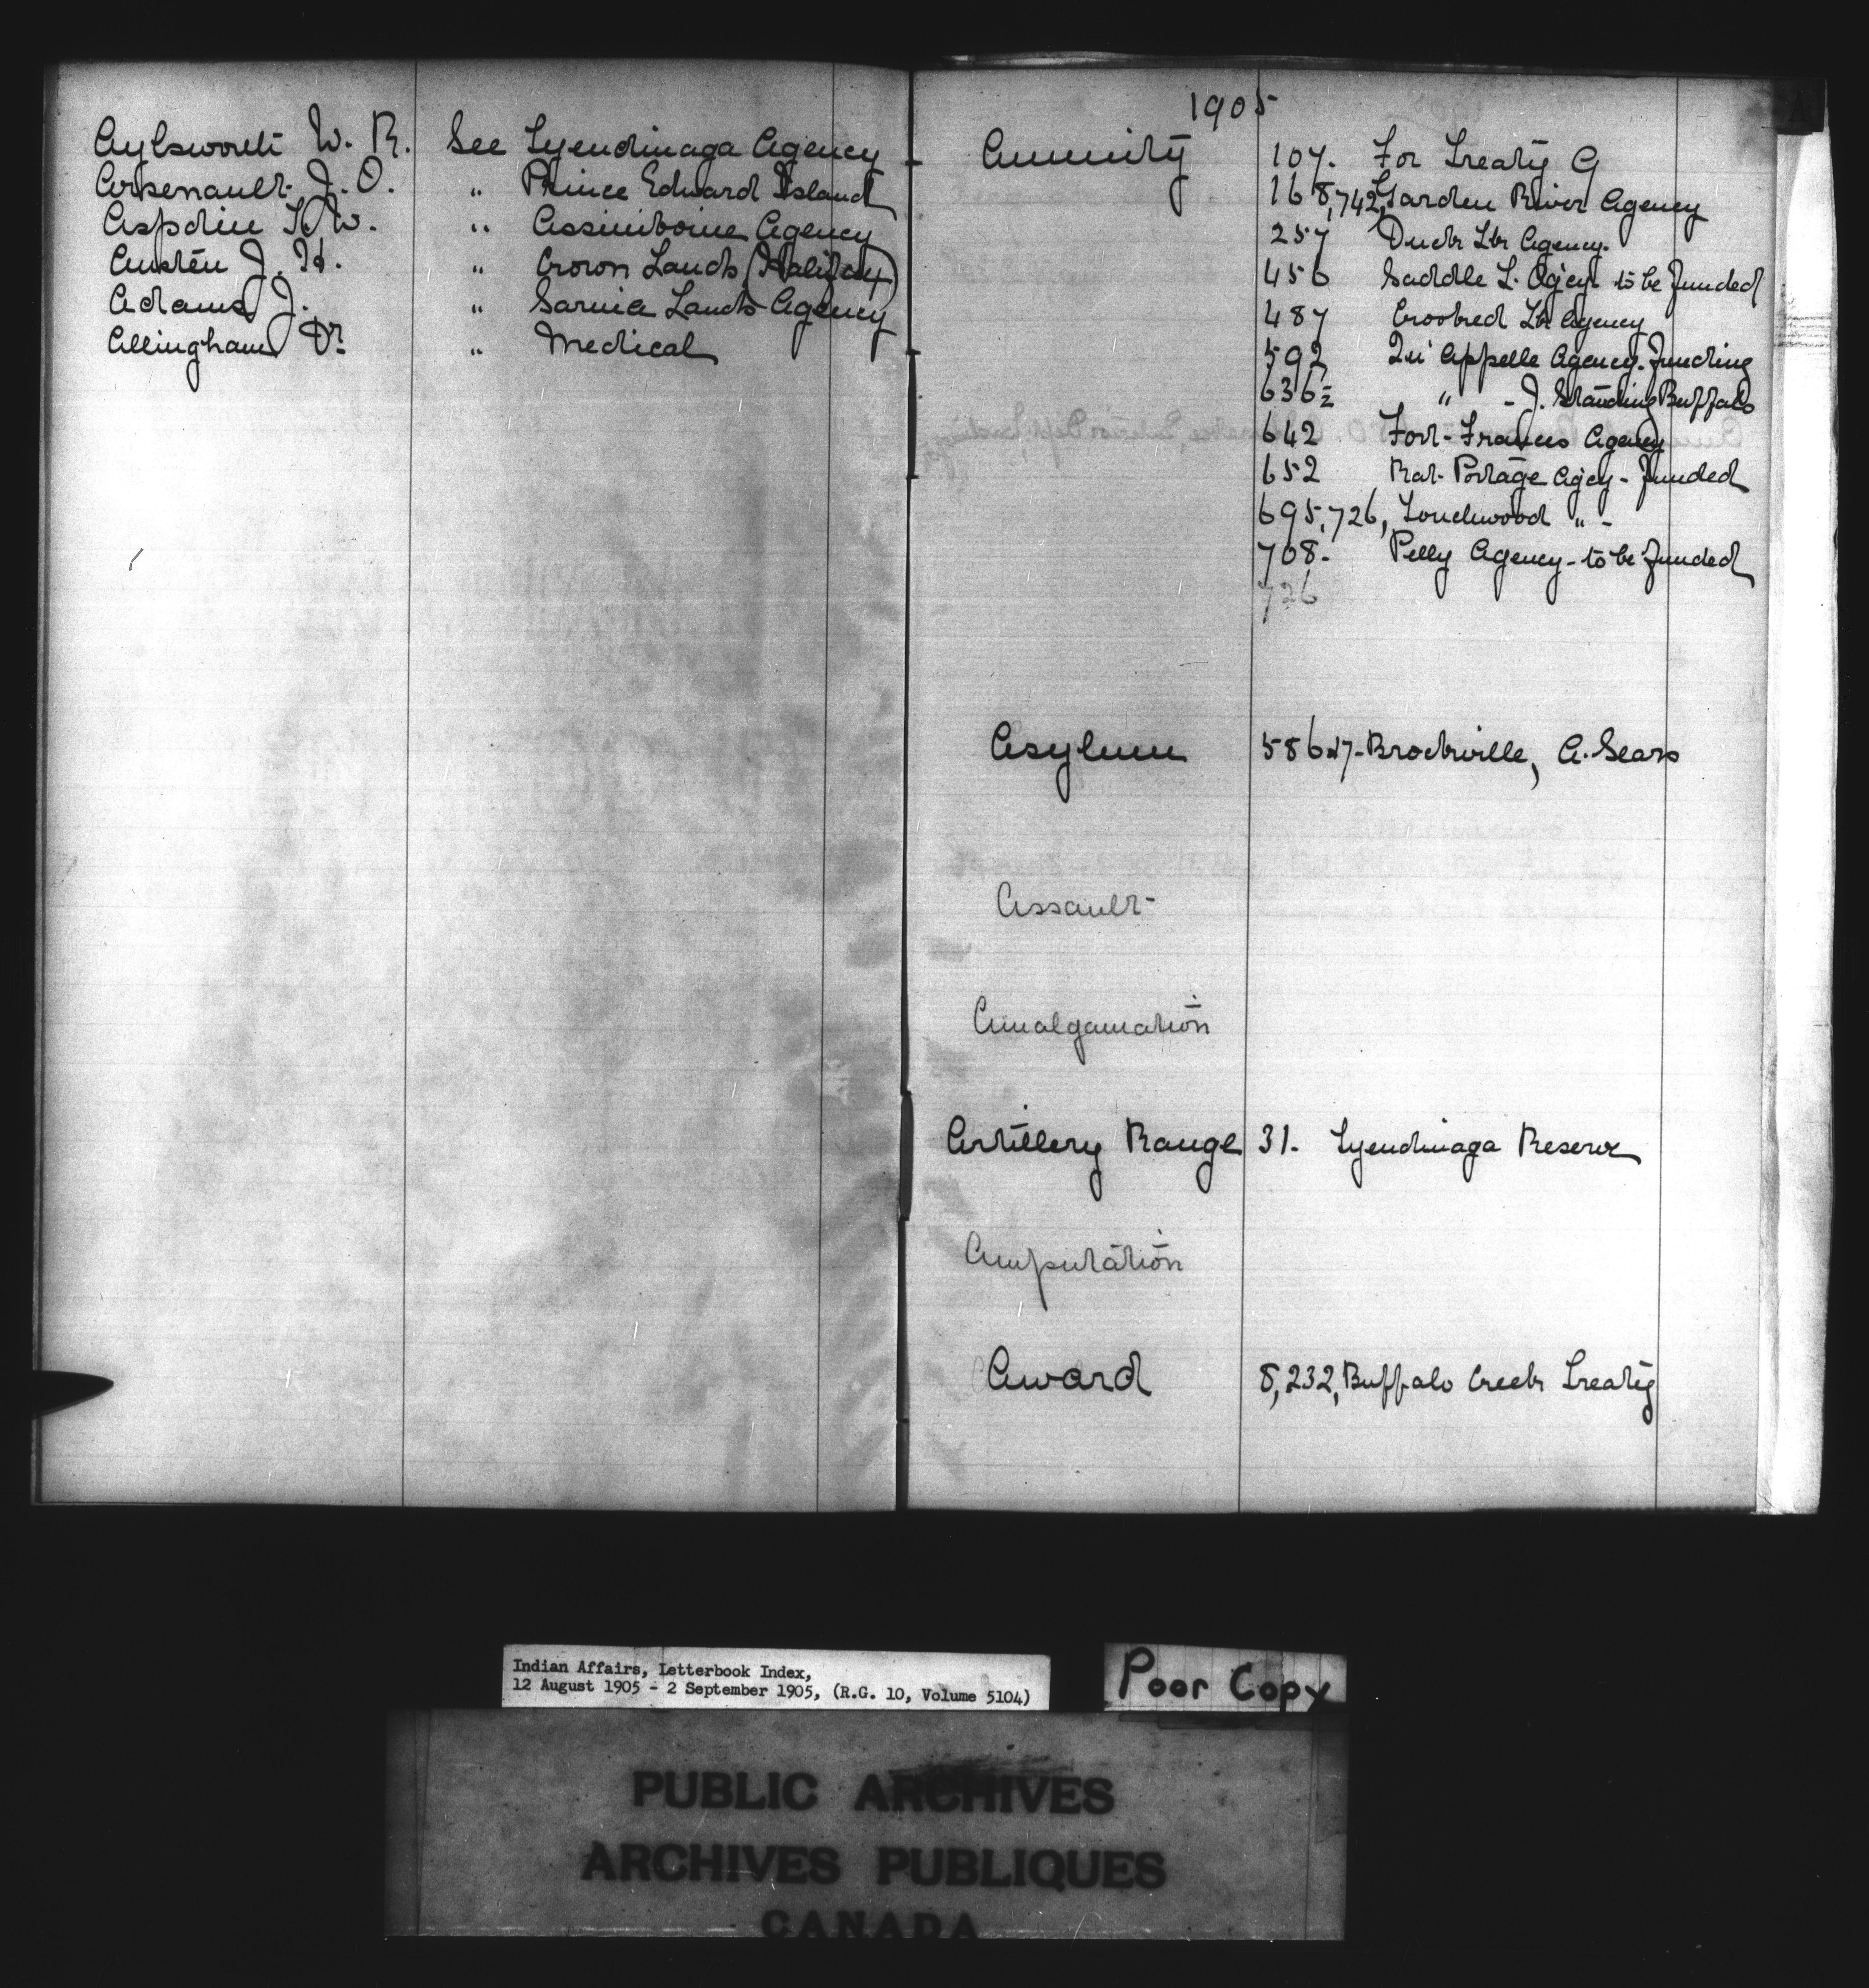 Aylsworth W. R. See Tyendinaga Agency
Arsenault J. O. " Prince Edward Island
Aspdin T. W. " Assiniboine Agency
Austen J. H. " Crown Lands (Halifax)
Adams J. " Sarnia Lands Agency
Allingham Dr. " Medical
A
1905
Annuity 107. For Treaty 9
168, 742, Garden River Agency
257 Duck Lk Agency.
456 Saddle L. Agcy to be funded
487 Crooked Lk Agency
592 Qu'Appelle Agency. Funding
636½ " - J. Standing Buffalo
642 Fort Frances Agency
652 Rat Portage Agcy - funded
695, 726, Touchwood " -
708. Pelly Agency - to be funded
726
Asylum 586 Brockville, A. Sears
Assault
Amalgamation
Artillery Range 31. Tyendinaga Reserve
Amputation
Award 8, 232, Buffalo Creek Treaty
Indian Affairs, Letterbook Index,
12 August 1905 - 2 September 1905, (R.G. 10, Volume 5104)
Poor Copy
PUBLIC ARCHIVES
ARCHIVES PUBLIQUES
CANADA